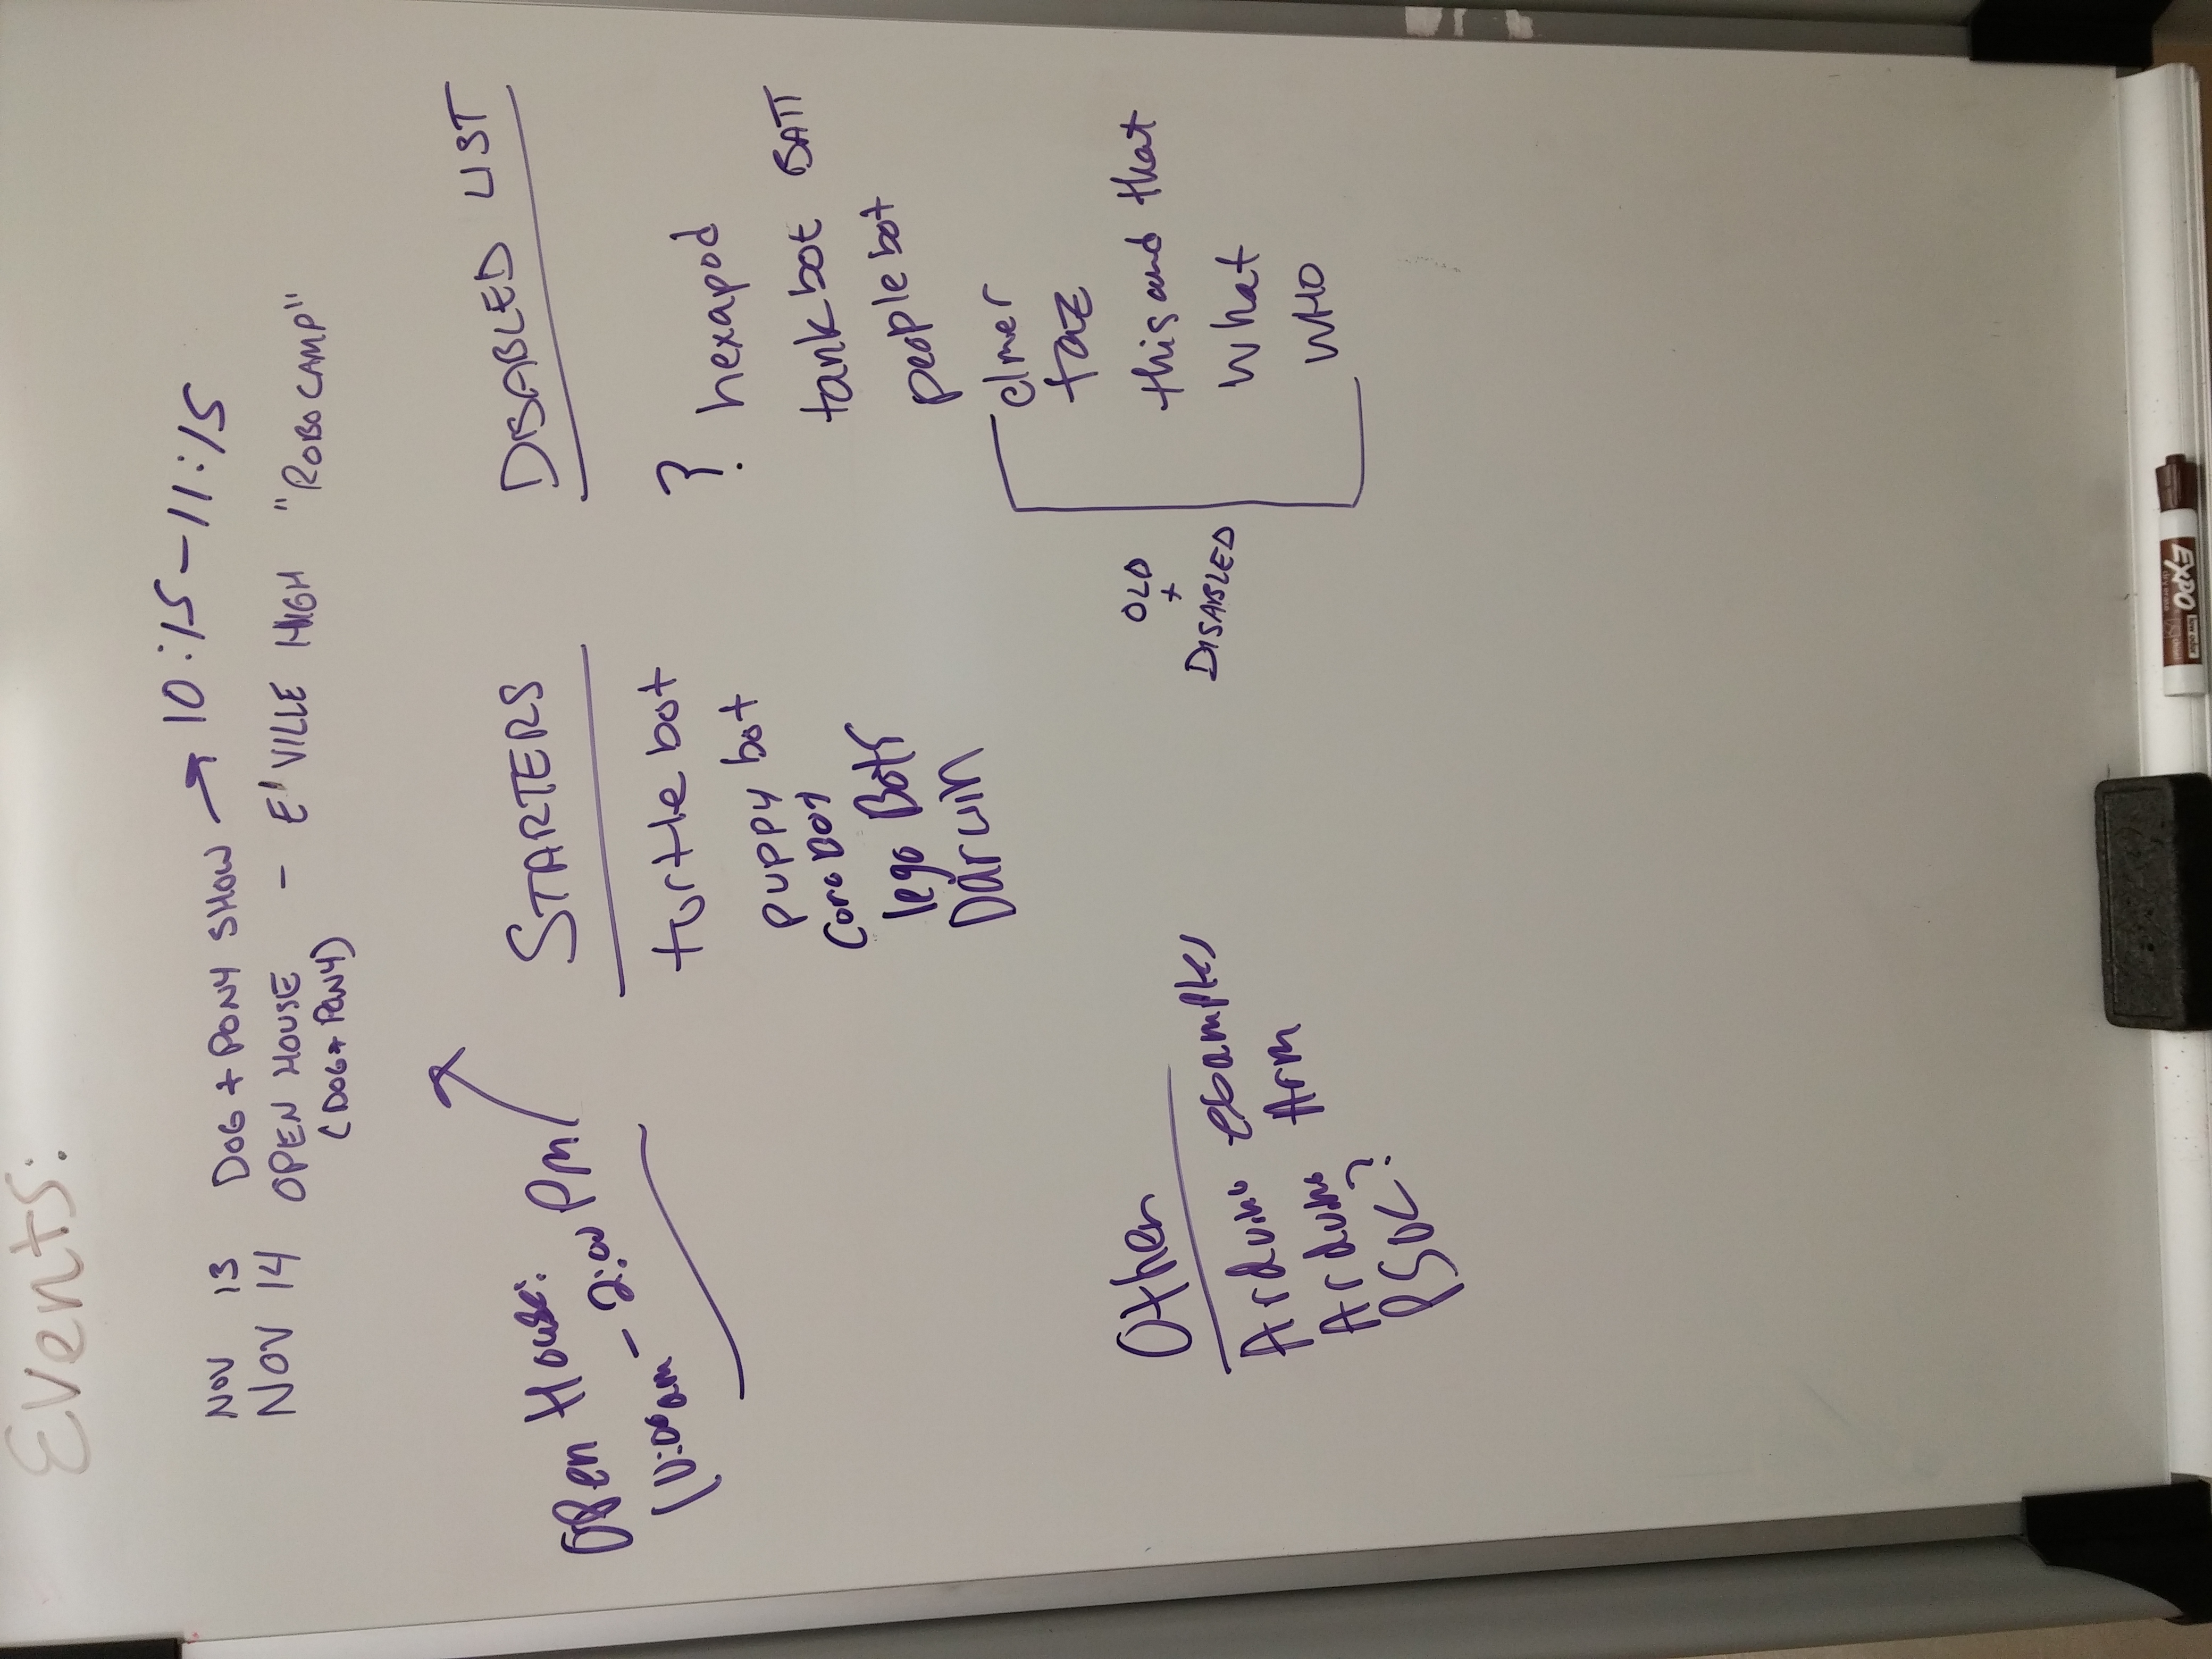 Events:
NOV 13 DOG + PONY SHOW → 10:15-11:15
NOV 14 OPEN HOUSE - E'VILLE HIGH "ROBOCAMP"
(DOG + PONY)
Open House:
2:00 Pm
STARTERS
turtle bot
puppy bot
CoroBot
lego Bots
Darwin
DISABLED LIST
? hexapod
tankbot BATT
people bot
elmer
taz
this and that
what
WHO
OLD
+
DISABLED
Other
Arduino examples
Arduino Arm
PSOC?
EXPO
dry erase
low odor